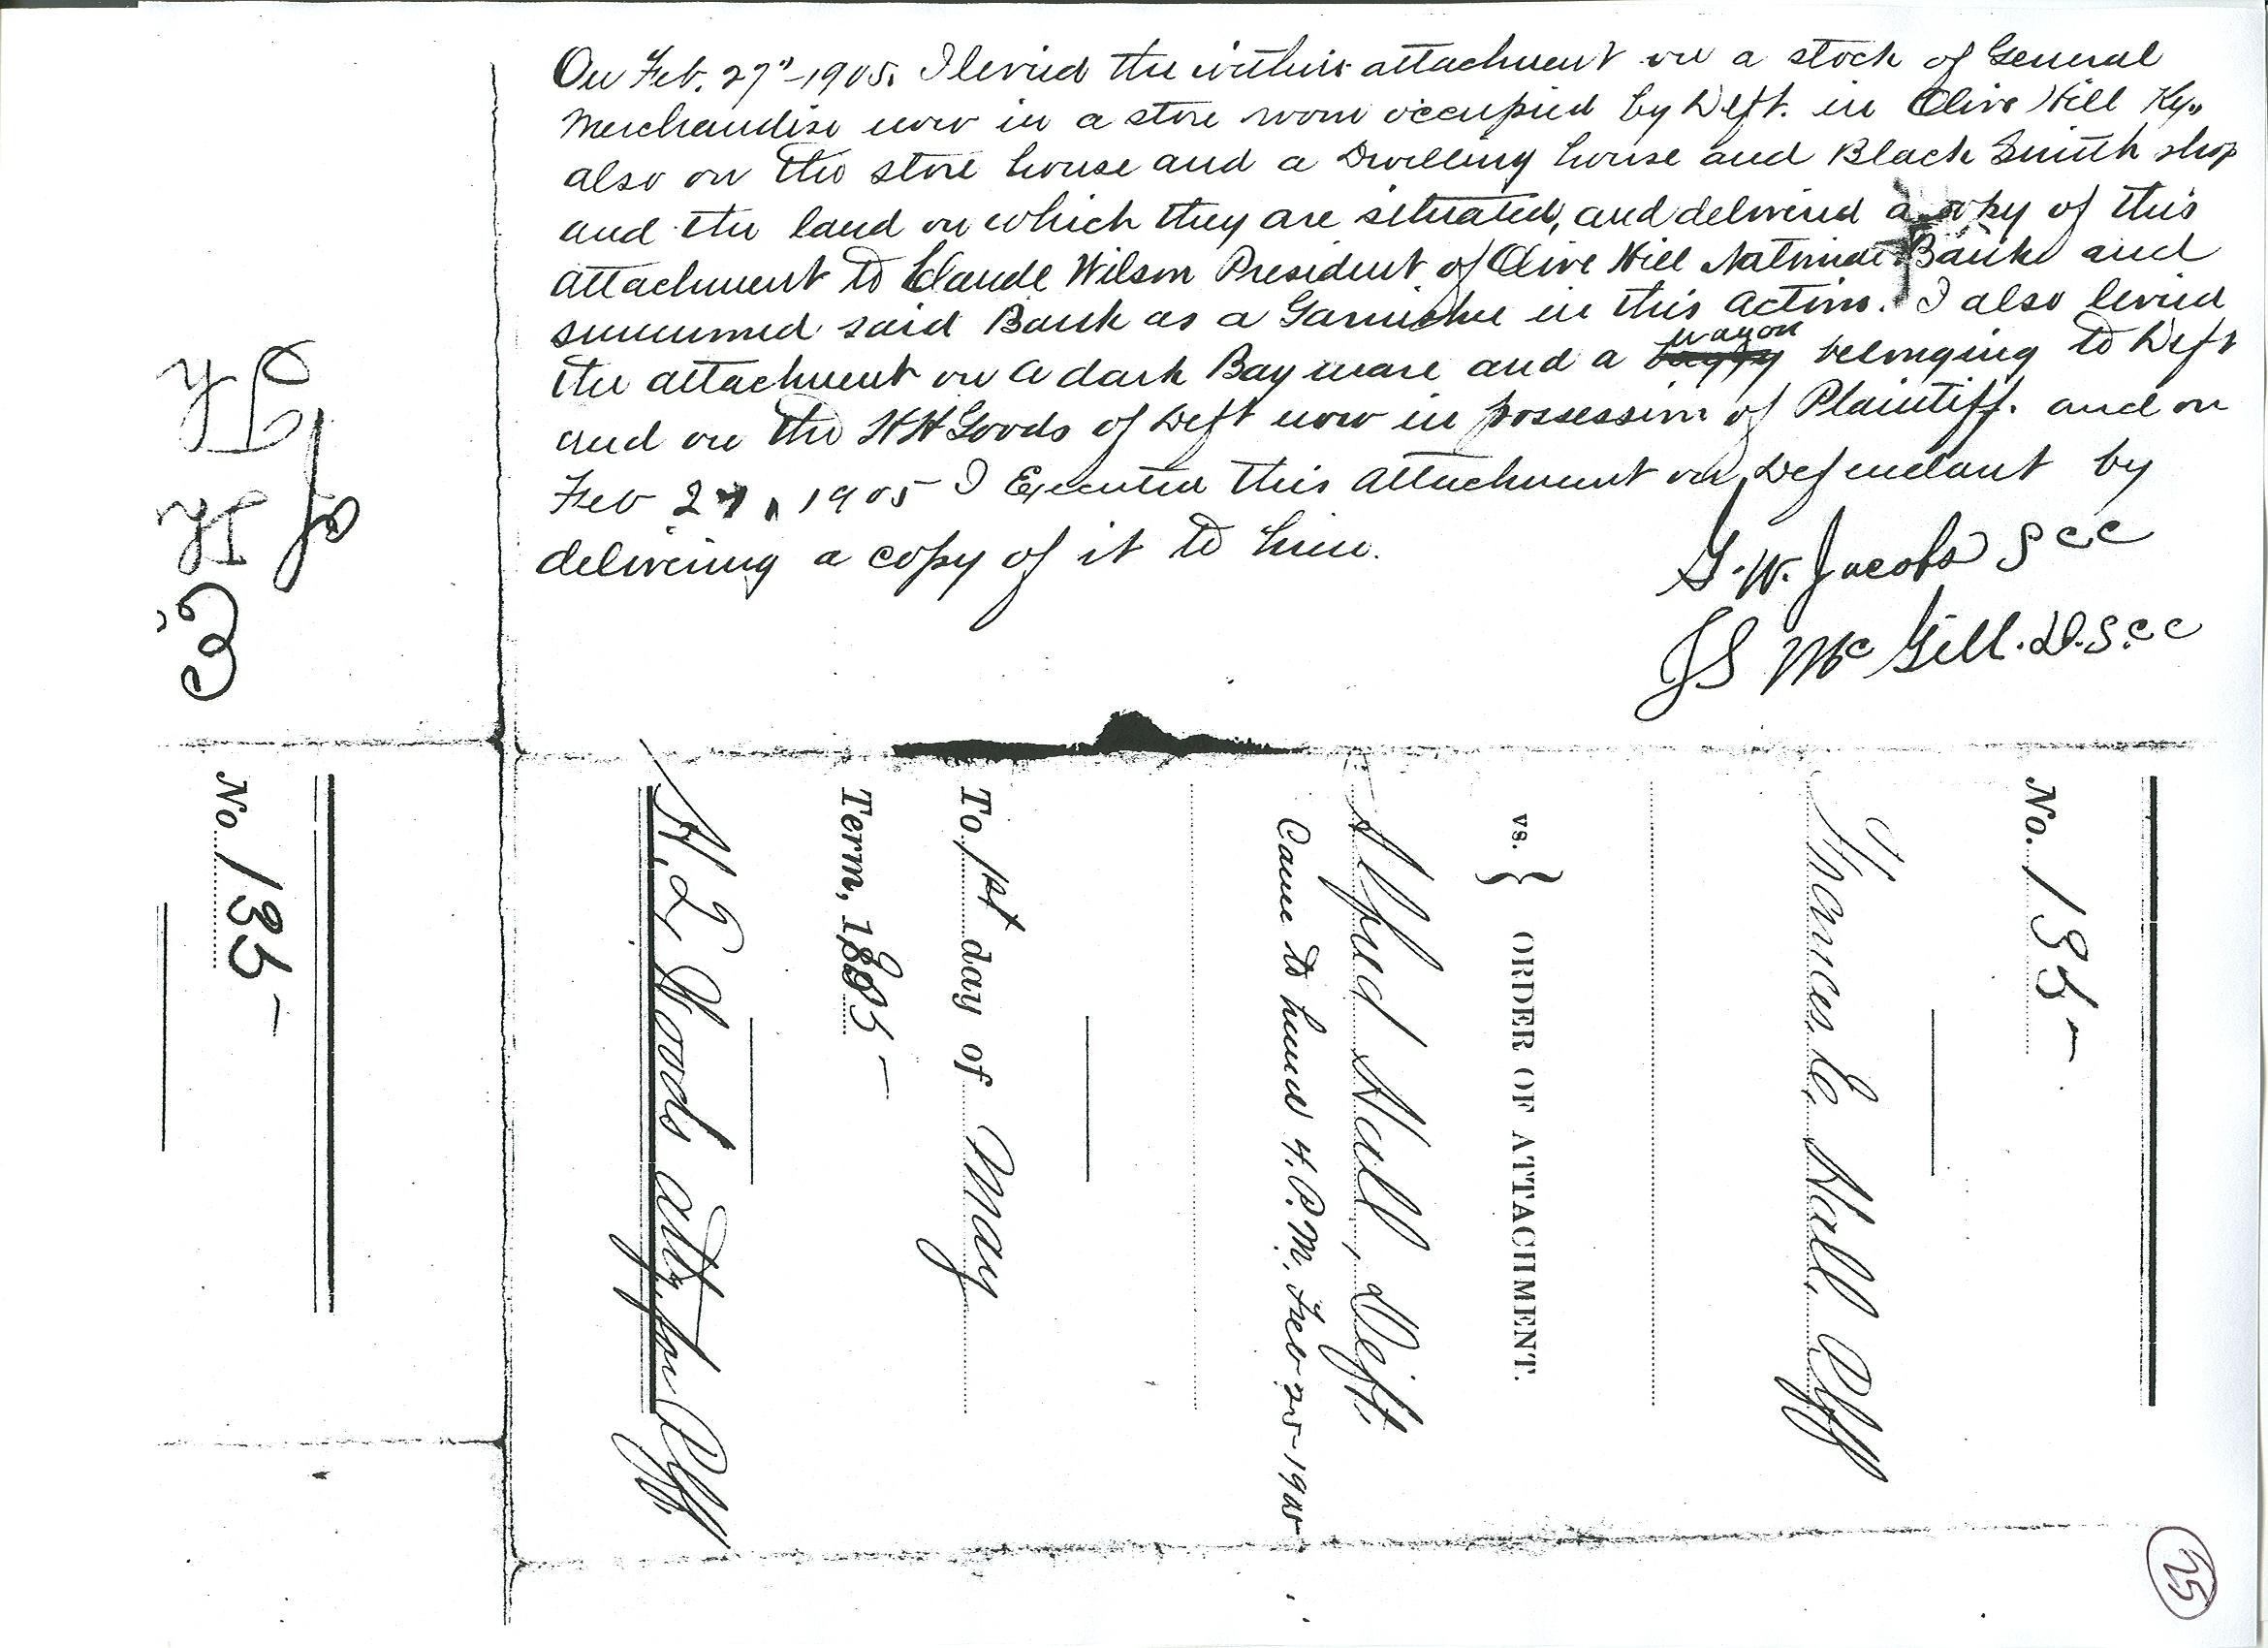 On Feb. 27"-1905. I levied the within attachment on a stock of General
Merchandise now in a store room occupied by Deft. in Olive Hill Ky.,
also on the store house and a Dwelling house and Black Smith shop
and the land on which they are situated, and delivered a copy of this
attachment to Claude Wilson President of Olive Hill National Bank and
summoned said Bank as a Garnishee in this action. I also levied
the attachment on a dark Bay mare and a wagon belonging to Deft
and on the HH Goods of Deft now in possession of Plaintiff. and on
Feb 27, 1905 I Executed this attachment on Defendant by
delivering a copy of it to him.
G.W. Jacobs SCC
JS McGill. D.S.CC
No. 135-
Frances E. Hall, Plff
vs. } ORDER OF ATTACHMENT.
Alfred Hall, Deft.
Came to hand 4. P.M. Feb 25-1905
To 1st day of May
Term, 1905-
H. L. Woods atty for Plff
No. 135-
25